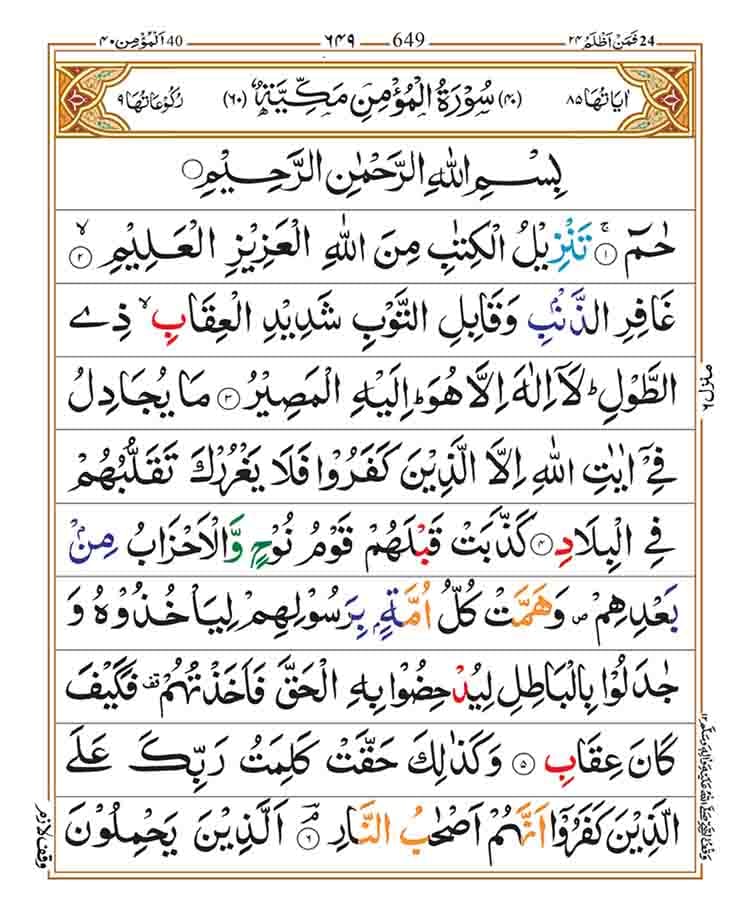 فَمَنْ اَظْلَمُ ٢٤ 24 649 ٦٤٩ اَلْمُؤْمِن ٤٠ 40
اٰيَاتُهَا ٨٥ (٤٠) سُوْرَةُ الْمُؤْمِنِ مَكِّيَّةٌ (٦٠) رُكُوْعَاتُهَا ٩
بِسْمِ اللّٰهِ الرَّحْمٰنِ الرَّحِيْمِ
حٰمٓ ۚ ١ تَنْزِيْلُ الْكِتٰبِ مِنَ اللّٰهِ الْعَزِيْزِ الْعَلِيْمِ ۙ ٢
غَافِرِ الذَّنْۢبِ وَقَابِلِ التَّوْبِ شَدِيْدِ الْعِقَابِ ۙ ذِي
الطَّوْلِ ؕ لَاۤ اِلٰهَ اِلَّا هُوَ ؕ اِلَيْهِ الْمَصِيْرُ ٣ مَا يُجَادِلُ
فِيْۤ اٰيٰتِ اللّٰهِ اِلَّا الَّذِيْنَ كَفَرُوْا فَلَا يَغْرُرْكَ تَقَلُّبُهُمْ
فِي الْبِلَادِ ٤ كَذَّبَتْ قَبْلَهُمْ قَوْمُ نُوْحٍ وَّالْاَحْزَابُ مِنْۢ
بَعْدِهِمْ ۪ وَهَمَّتْ كُلُّ اُمَّةٍۭ بِرَسُوْلِهِمْ لِيَاْخُذُوْهُ وَ
جٰدَلُوْا بِالْبَاطِلِ لِيُدْحِضُوْا بِهِ الْحَقَّ فَاَخَذْتُهُمْ قف فَكَيْفَ
كَانَ عِقَابِ ٥ وَكَذٰلِكَ حَقَّتْ كَلِمَتُ رَبِّكَ عَلَي
الَّذِيْنَ كَفَرُوْۤا اَنَّهُمْ اَصْحٰبُ النَّارِ ۘ ٦ اَلَّذِيْنَ يَحْمِلُوْنَ
منزل ٦
وقف لازم